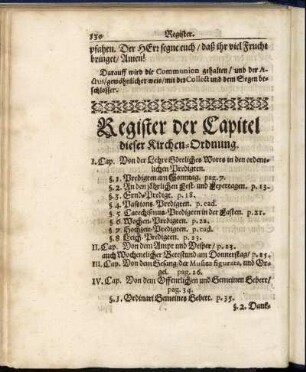 130 Register.
pfahen. Der HErr segne euch / daß ihr viel Frucht
bringet / Amen!
Darauff wird die Communion gehalten / und der A-
ctus / gewöhnlicher weis / mit der Collect und dem Segen be-
schlossen.
Register der Capitel
dieser Kirchen-Ordnung.
I. Cap. Von der Lehre Göttliches Worts in den ordent-
lichen Predigten.
§. 1. Predigten am Sonntag. pag. 7.
§. 2. An den jährlichen Fest- und Feyertagen. p. 13.
§. 3. Ernd-Predigt. p. 18.
§. 4. Passions-Predigten. p. ead.
§. 5. Catechismus-Predigten in der Fasten. p. 21.
§. 6. Wochen-Predigten. p. 22.
§. 7. Hochzeit-Predigten. p. ead.
§. 8 Leich-Predigten. p. 23.
II. Cap. Von dem Ampt und Vesper / p. 23.
auch Wochentlicher Betstund am Donnerstag / p. 25.
III. Cap. Von dem Gesang der Musica figurata, und Or-
gel. pag. 26.
IV. Cap. Von dem Offentlichen und Gemeinen Gebett /
pag. 34.
§. 1. Ordinari Gemeines Gebett. p. 35.
§. 2. Dank-